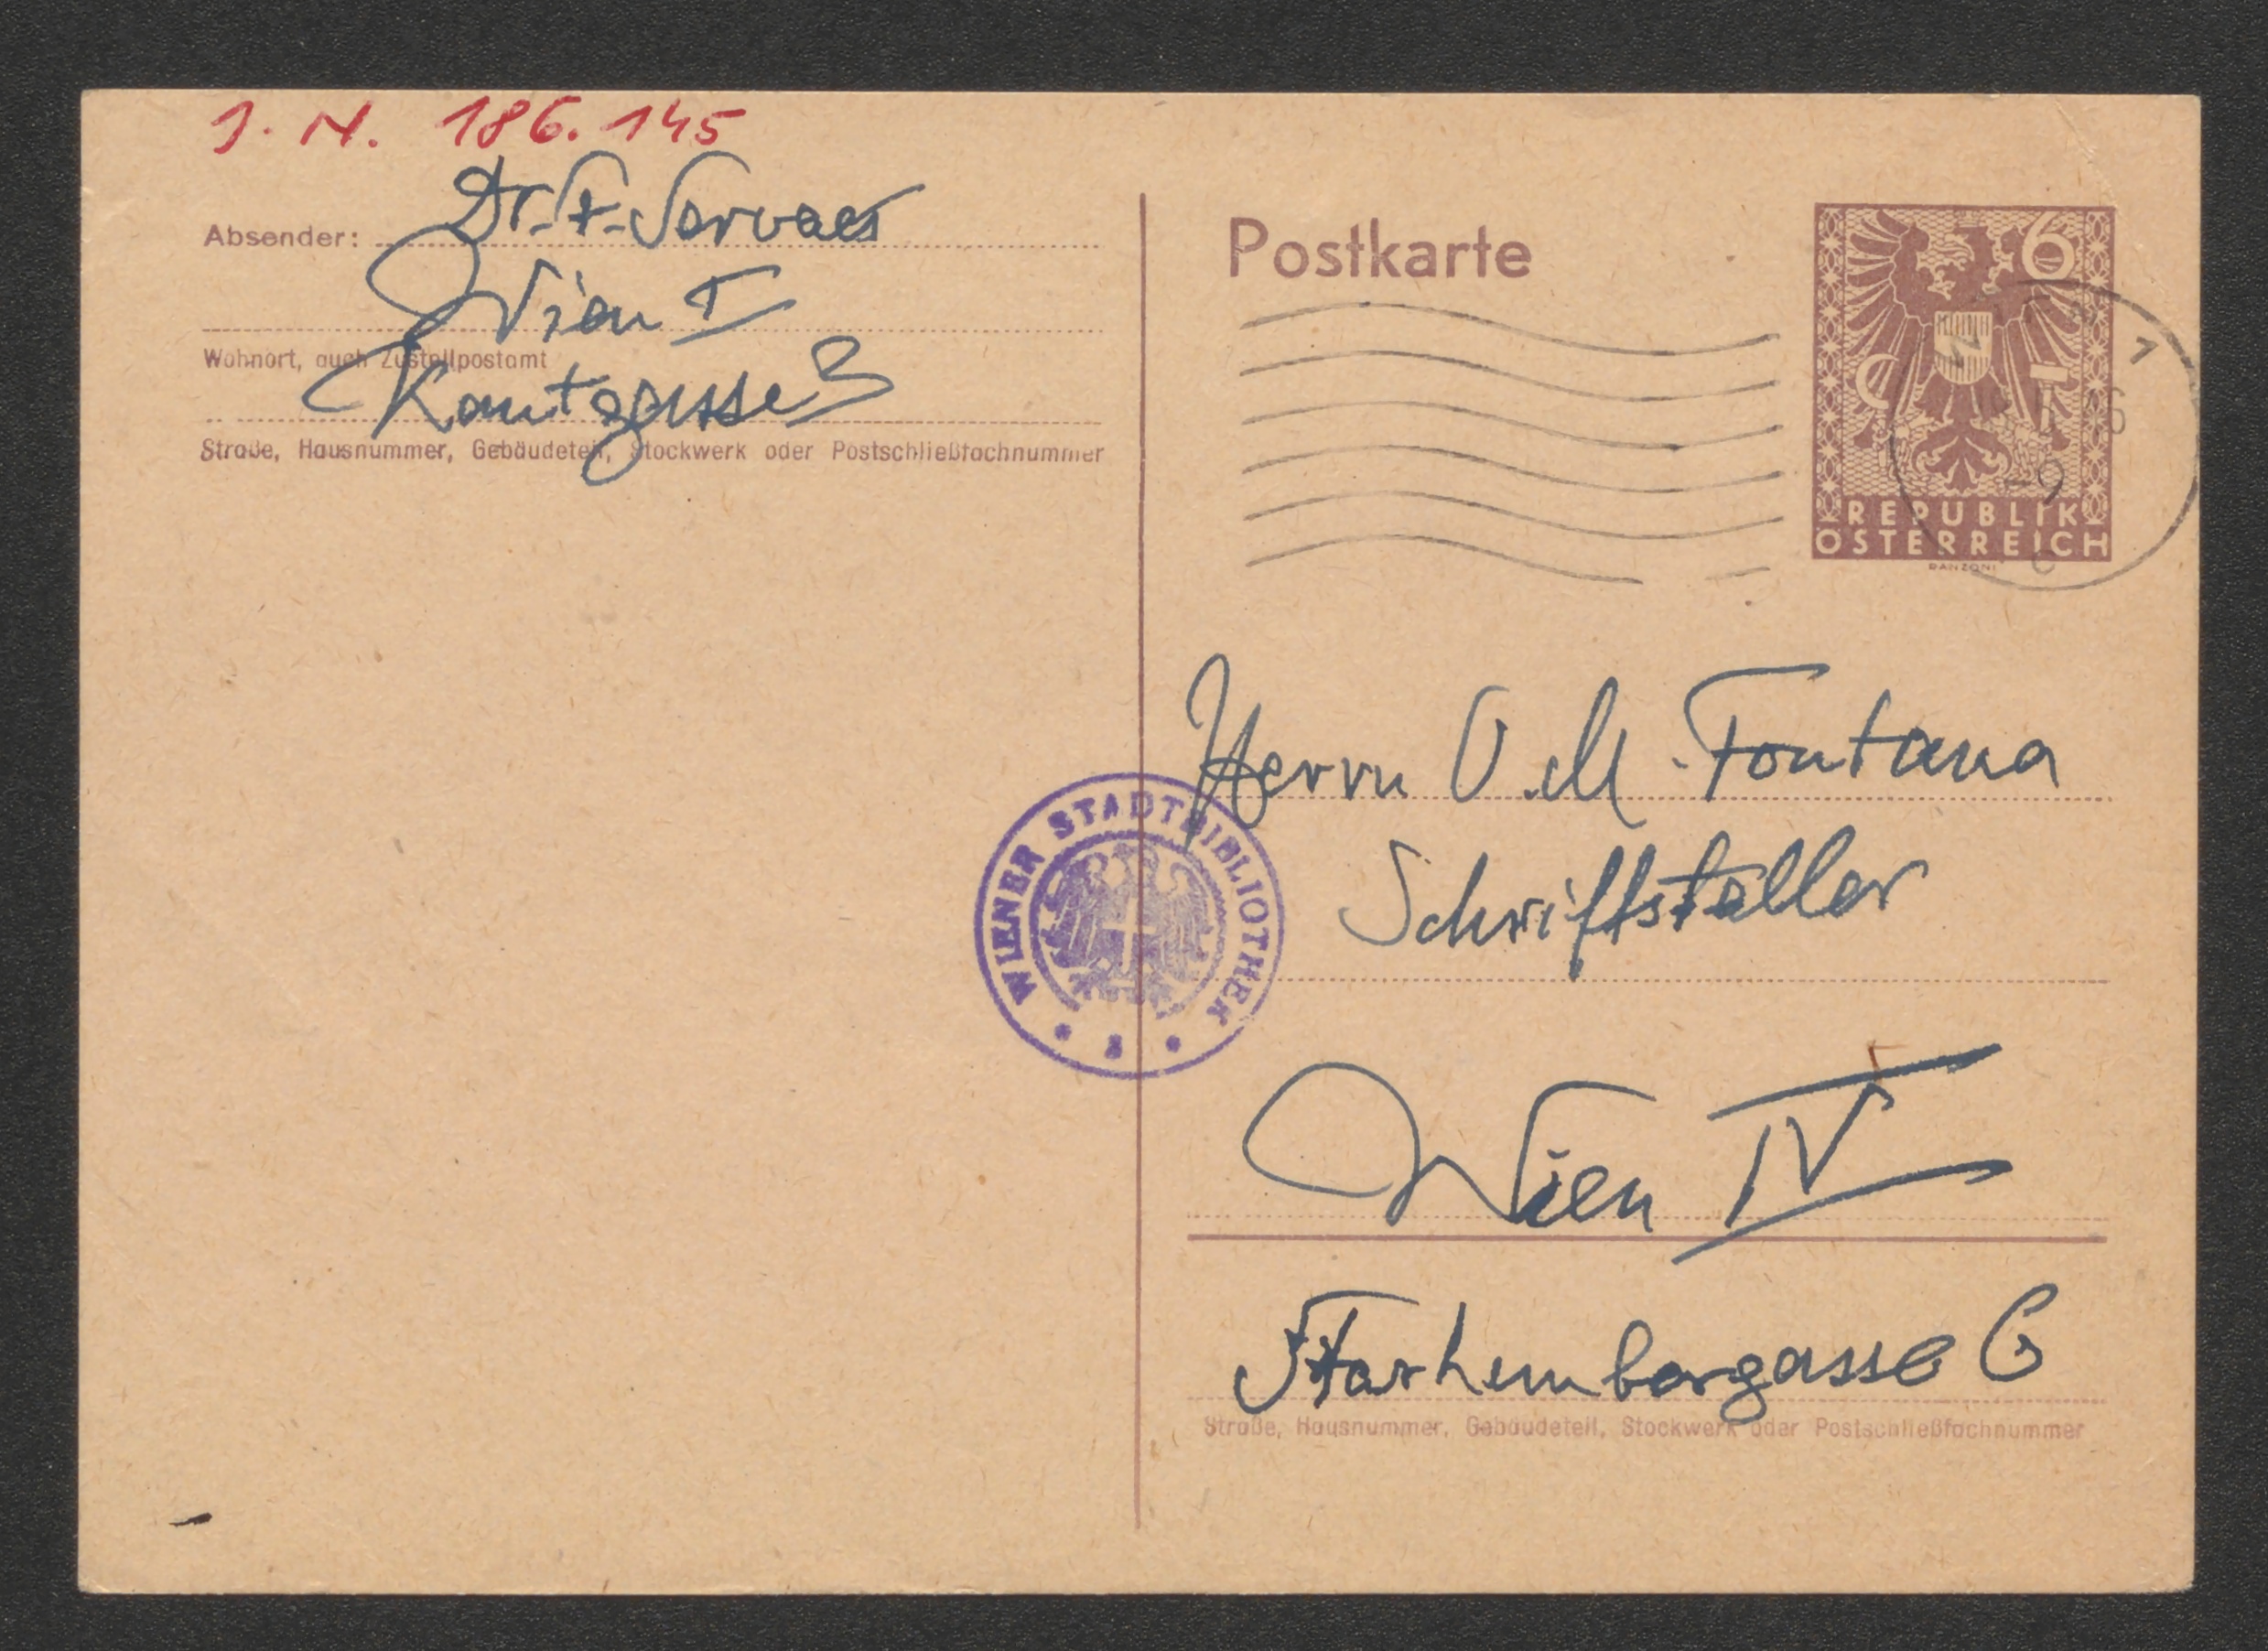 J. N. 186.145
Absender: Dr. F. Servaes
Wien I
Wohnort, auch Zustellpostamt
Kantgasse 3
Straße, Hausnummer, Gebäudeteil, Stockwerk oder Postschließfachnummer
Postkarte
6
1
-9
c
REPUBLIK
ÖSTERREICH
RANZONI
Herrn O. M. Fontana
Schriftsteller
WIENER STADTBIBLIOTHEK
Wien IV
Starhembergasse 6
Straße, Hausnummer, Gebäudeteil, Stockwerk oder Postschließfachnummer